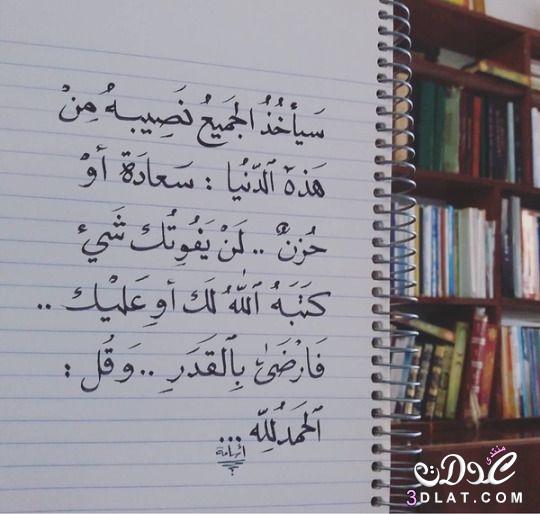 سَيأخُذُ الجَميعُ نَصِيبهُ مِنْ
هَذهْ ٱلدّنُيا : سَعادَة أوْ
حُزنٌ .. لَنْ يَفُوتُك شَيْء
كتَبَهُ ٱللّٰهُ لَك أو عَليْك ..
فَارْضَىٰ بِٱلقَدَرِ .. وَقُل :
ٱلحَمدُللّه ...
أسامة
منتدى عدلات
3DLAT.COM